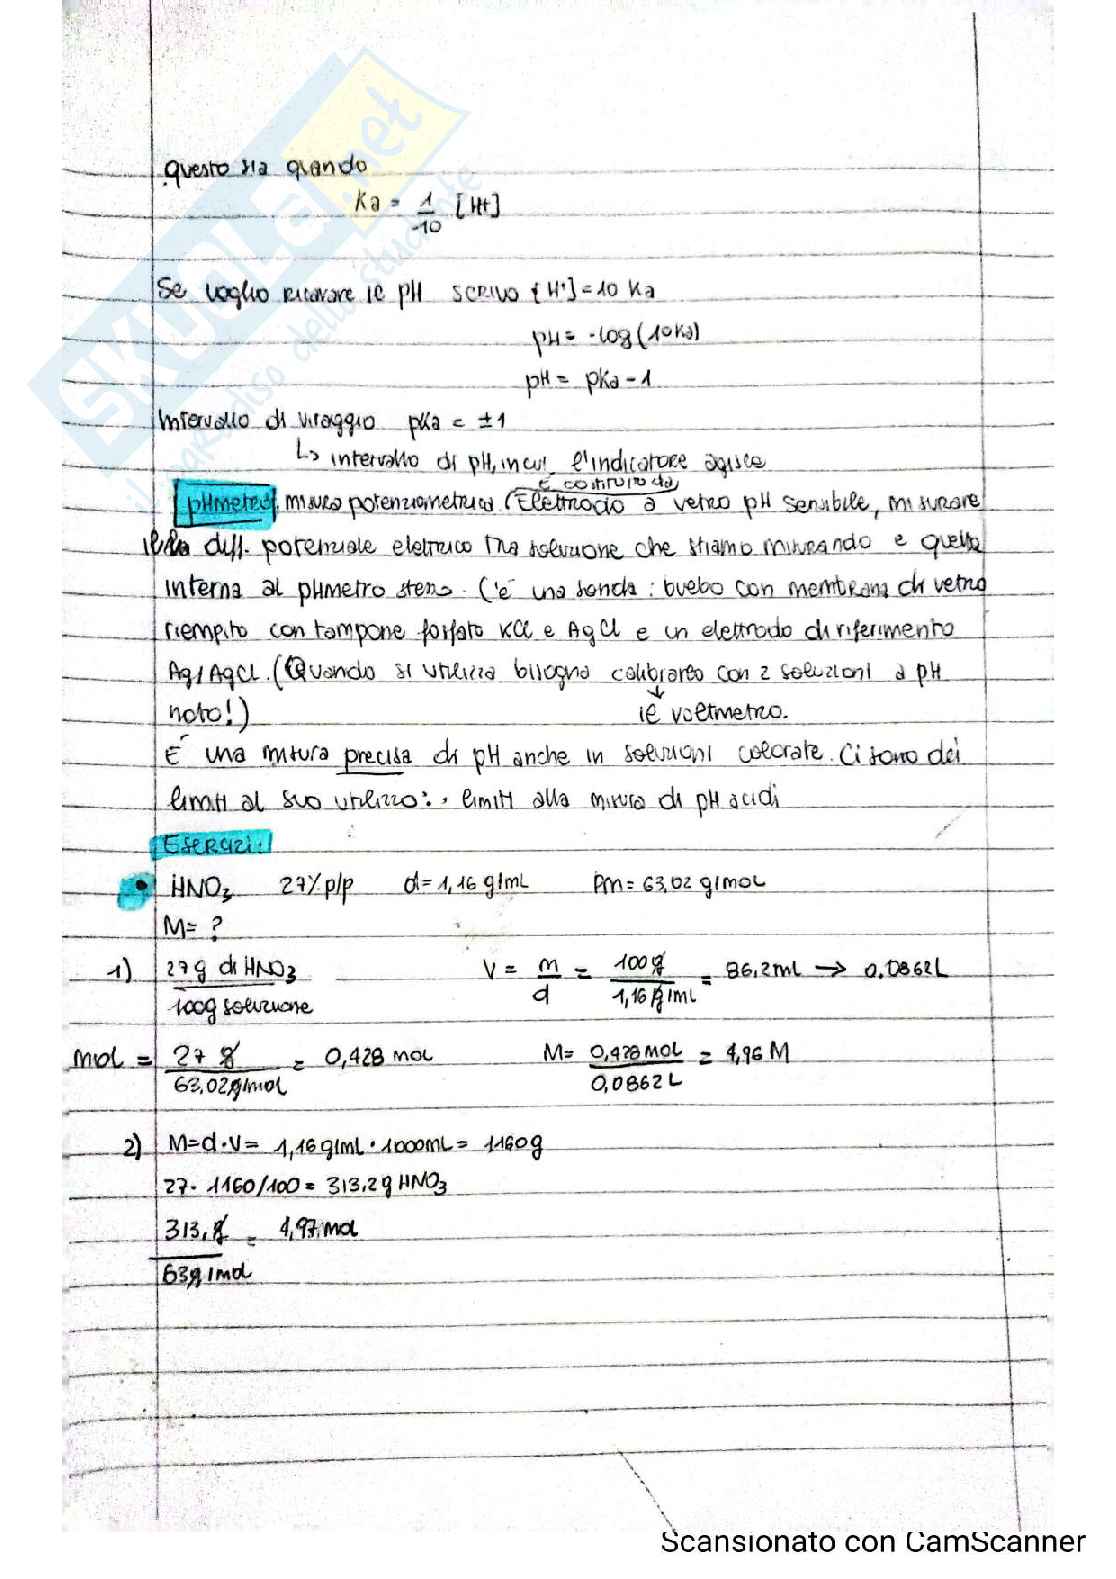 Questo sta quando
Ka = 1/10 [H+]
Se voglio ricavare il pH scrivo [H+]=10 Ka
pH = -log(10Ka)
pH = pKa-1
Intervallo di viraggio pKa = ±1
↳ intervallo di pH, in cui l'indicatore agisce
è costituito da
pHmetro: misura potenziometrica (Elettrodo a vetro pH sensibile, misurare
la diff. potenziale elettrico tra soluzione che stiamo misurando e quella
interna al pHmetro stesso. C'è una sonda: tubo con membrana di vetro
riempito con tampone fosfato KCl e AgCl e un elettrodo di riferimento
Ag/AgCl. (Quando si utilizza bisogna calibrarlo con 2 soluzioni a pH
noto!) il voltmetro.
È una misura precisa di pH anche in soluzioni colorate. Ci sono dei
limiti al suo utilizzo: • limiti alla misura di pH acidi
Esercizi:
• HNO3 27% p/p d=1,16 g/mL Pm=63,02 g/mol
M= ?
1) 27g di HNO3 / 100g soluzione V = m/d = 100g / 1,16 g/mL = 86,2mL → 0,0862L
mol = 27 g / 63,02g/mol = 0,428 mol M= 0,428 mol / 0,0862L = 4,96 M
2) M=d·V= 1,16g/mL · 1000mL= 1160g
27· 1160/100= 313,2g HNO3
313,g / 63g/mol = 4,97mol
Scansionato con CamScanner
SKUOLA.net
il paradiso dello studente